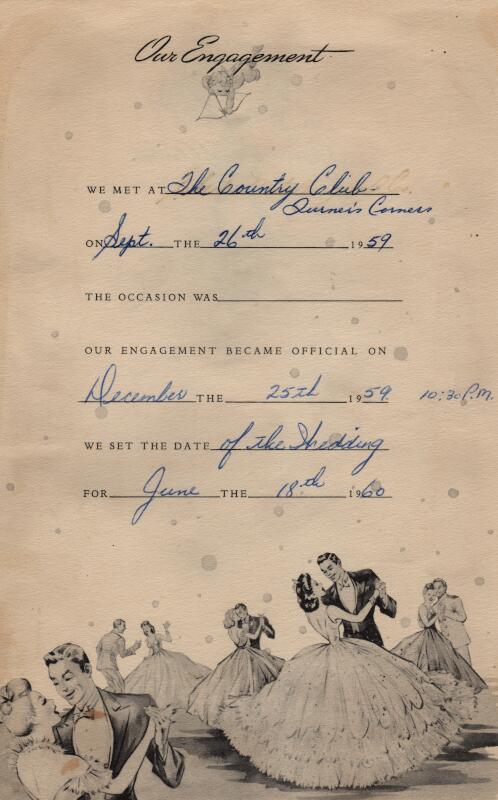 Our Engagement
WE MET AT The Country Club-
Turner's Corners
ON Sept. THE 26th 1959
THE OCCASION WAS
OUR ENGAGEMENT BECAME OFFICIAL ON
December THE 25th 1959 10:30 P.M.
WE SET THE DATE of the Wedding
FOR June THE 18th 1960